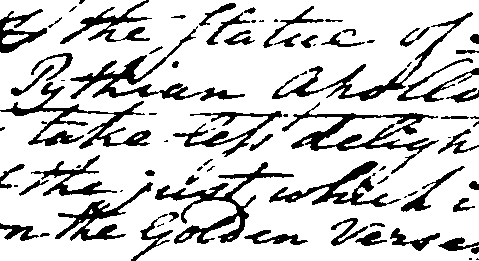 the Statue of
Pythian Apollo
take less deligh
the just, which i
n the Golden Verses